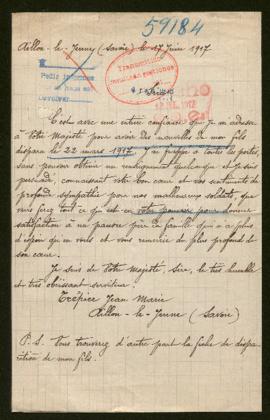 59184
Aillon-le-Jeune (Savoie) le 17 Juin 1917
Transmettre
Sire,
C'est avec une entière confiance que je m'adresse
à Votre Majesté pour avoir des nouvelles de mon fils
disparu le 22 mars 1917. J'ai frappé à toutes les portes,
sans pouvoir obtenir un renseignement quelconque et je suis
persuadé, connaissant votre bon cœur et vos sentiments de
profonde sympathie pour nos malheureux soldats, que
vous ferez tout ce qui est en votre pouvoir pour donner
satisfaction à un pauvre père de famille qui n'a plus
d'espoir qu'en vous et vous remercie du plus profond de
son cœur.
Je suis de Votre Majesté, Sire, le très humble
et très obéissant serviteur.
Trépice Jean Marie
Aillon-le-Jeune (Savoie)
P.S. Vous trouverez d'autre part la fiche de dispa-
rition de mon fils.